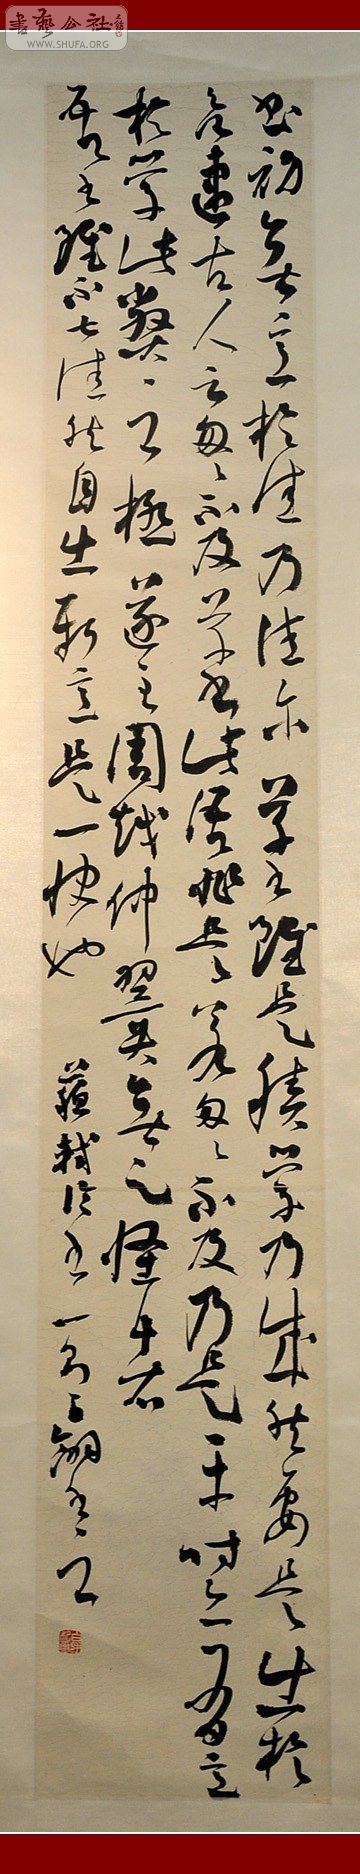 書藝公社
www.SHUFA.ORG
書初無意於佳乃佳尔草書雖是積學乃成然要是出於
欲速古人云匆匆不及草書此語非是若匆匆不及乃是平時亦有意
於學此弊之極遂至周越仲翼無足怪者
吾書雖不甚佳然自出新意是一快也 蘇軾論書一